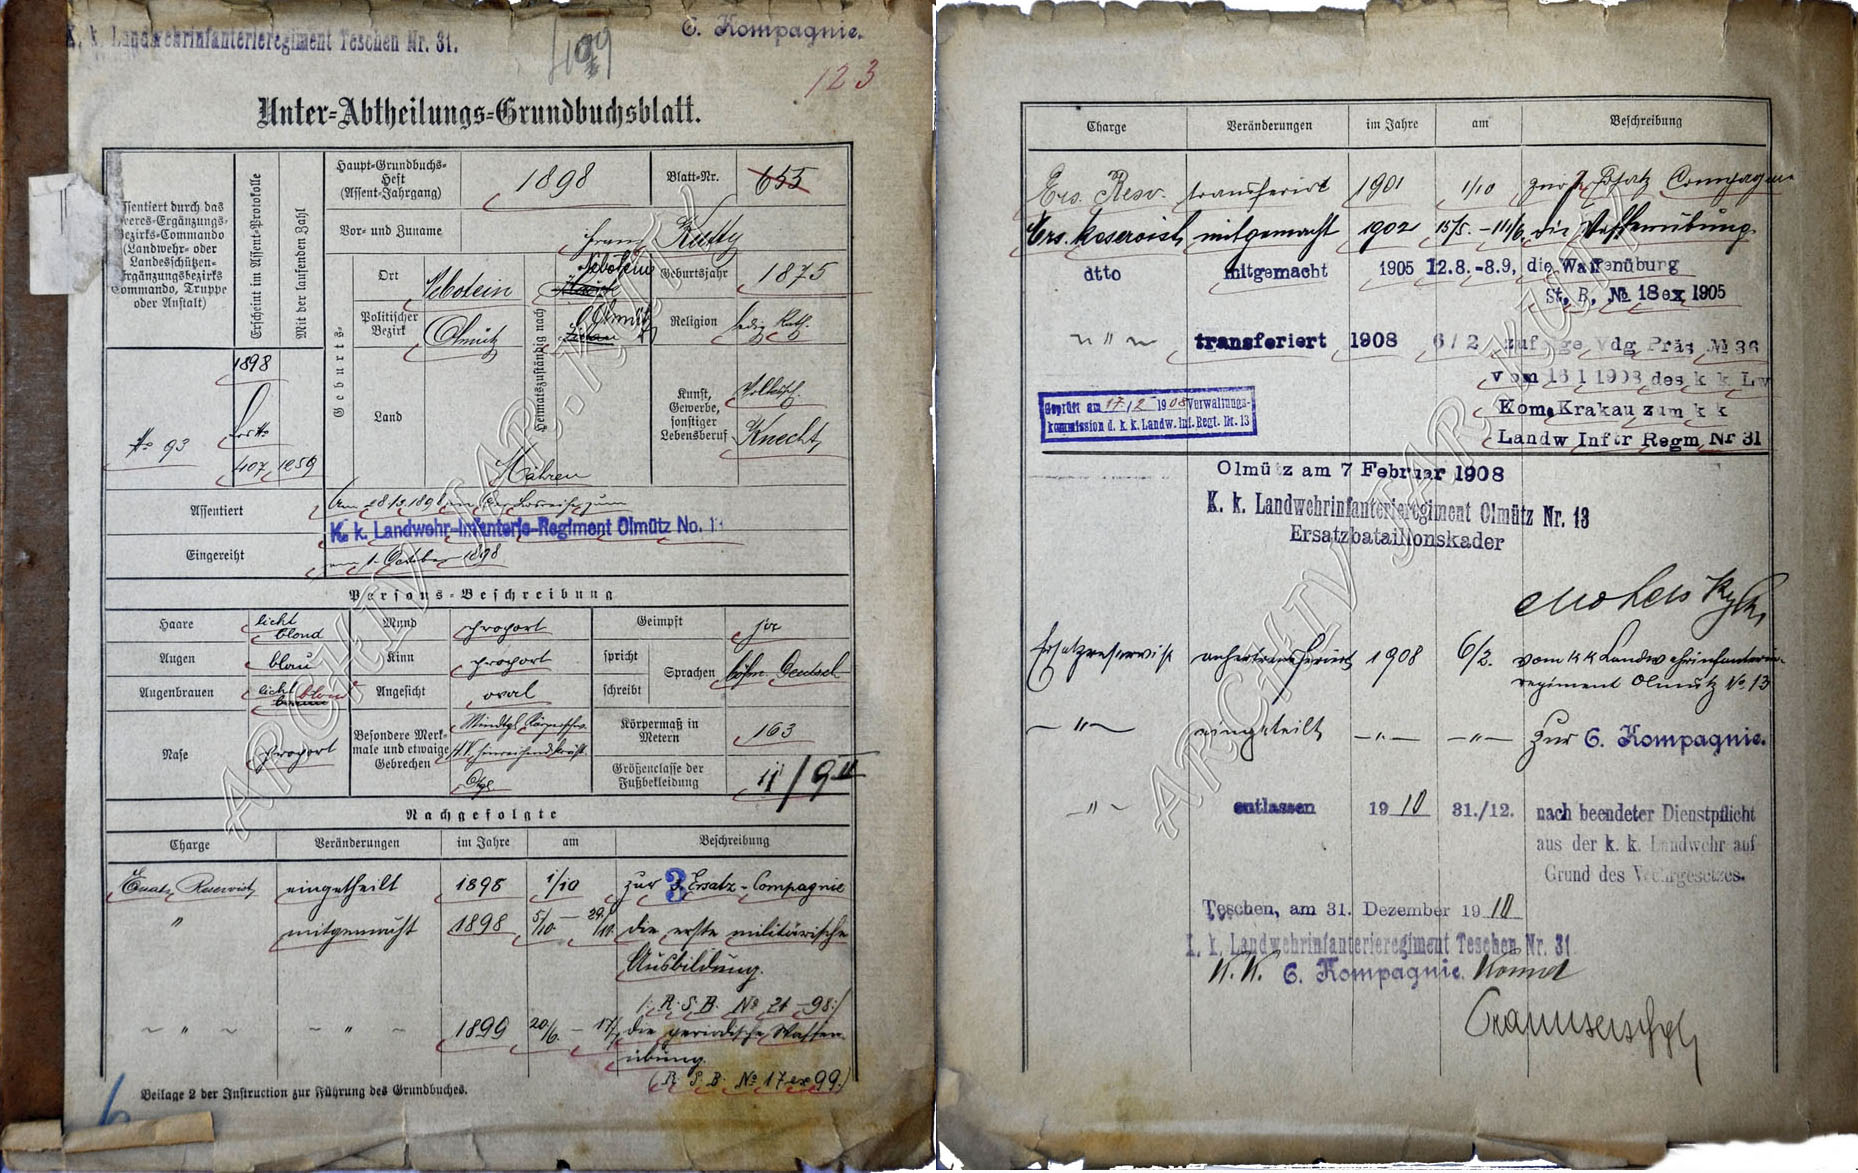 K. k. Landwehrinfanterieregiment Teschen Nr. 31.
6. Kompagnie.
123
Unter-Abtheilungs-Grundbuchsblatt.
Assentiert durch das Heeres-Ergänzungs-Bezirks-Commando (Landwehr- oder Landesschützen-Ergänzungsbezirks Commando, Truppe oder Anstalt)
Erscheint im Assent-Protokolle
Mit der laufenden Zahl
Haupt-Grundbuchs-Heft (Assent-Jahrgang)
1898
Blatt-Nr.
655
Vor- und Zuname
Franz Kutty
Geburts-
Ort
Nebotein
Heimatszuständig nach
Nebotein
Geburtsjahr
1875
Politischer Bezirk
Olmütz
Olmütz
Religion
kath.
1898
Land
Mähren
Kunst, Gewerbe, sonstiger Lebensberuf
Knecht
No 93
407 1259
Assentiert
K. k. Landwehr-Infanterie-Regiment Olmütz No. 13
Eingereiht
am 1. October 1898
Persons-Beschreibung
Haare
licht blond
Mund
proport
Geimpft
ja
Augen
blau
Kinn
proport
spricht
schreibt
Sprachen
böhm. Deutsch
Augenbrauen
licht blond
Angesicht
oval
Nase
proport
Besondere Merkmale und etwaige Gebrechen
Körpermaß in Metern
163
Größenclasse der Fußbekleidung
11/9 II
Nachgefolgte
Charge
Veränderungen
im Jahre
am
Beschreibung
Ersatz Reservist eingetheilt 1898 1/10 zur 3 Ersatz-Compagnie
" mitgemacht 1898 5/10 – 29/11 die erste militärische
Ausbildung.
/: R. S. B. No 21 – 98 :/
~ " ~ ~ " ~ 1899 20/6 – 17/7 die periodische Waffen-
übung.
(R. S. B. No 17 ex 99.)
Beilage 2 der Instruction zur Führung des Grundbuches.
6
Charge
Veränderungen
im Jahre
am
Beschreibung
Ers. Resv. transferirt 1901 1/10 zur Ersatz Compagnie
Ers. Reservist mitgemacht 1902 15/5. – 11/6. die Waffenübung.
dtto mitgemacht 1905 12.8.–8.9, die Waffenübung
St, B, No 18 ex 1905
~ " ~ transferiert 1908 6/2 zufolge Vdg Präs No 36
vom 16 1 1908 des k k Lw
Kom. Krakau zum k k
Landw Inftr Regm Nr 31
Geprüft am 17./2 1908 Verwaltungs-
kommission d. k. k. Landw. Inf. Regt. Nr. 13
Olmütz am 7 Februar 1908
K. k. Landwehrinfanterieregiment Olmütz Nr. 13
Ersatzbataillonskader
Ersatzreservist anhertransferiert 1908 6/2. vom k k Landwehrinfanterie-
regiment Olmütz No. 13
~ " ~ eingeteilt – " – – " – zur 6. Kompagnie.
– " ~ entlassen 1910 31./12. nach beendeter Dienstpflicht
aus der k. k. Landwehr auf
Grund des Wehrgesetzes.
Teschen, am 31. Dezember 1910
K. k. Landwehrinfanterieregiment Teschen Nr. 31
K. K. 6. Kompagnie.